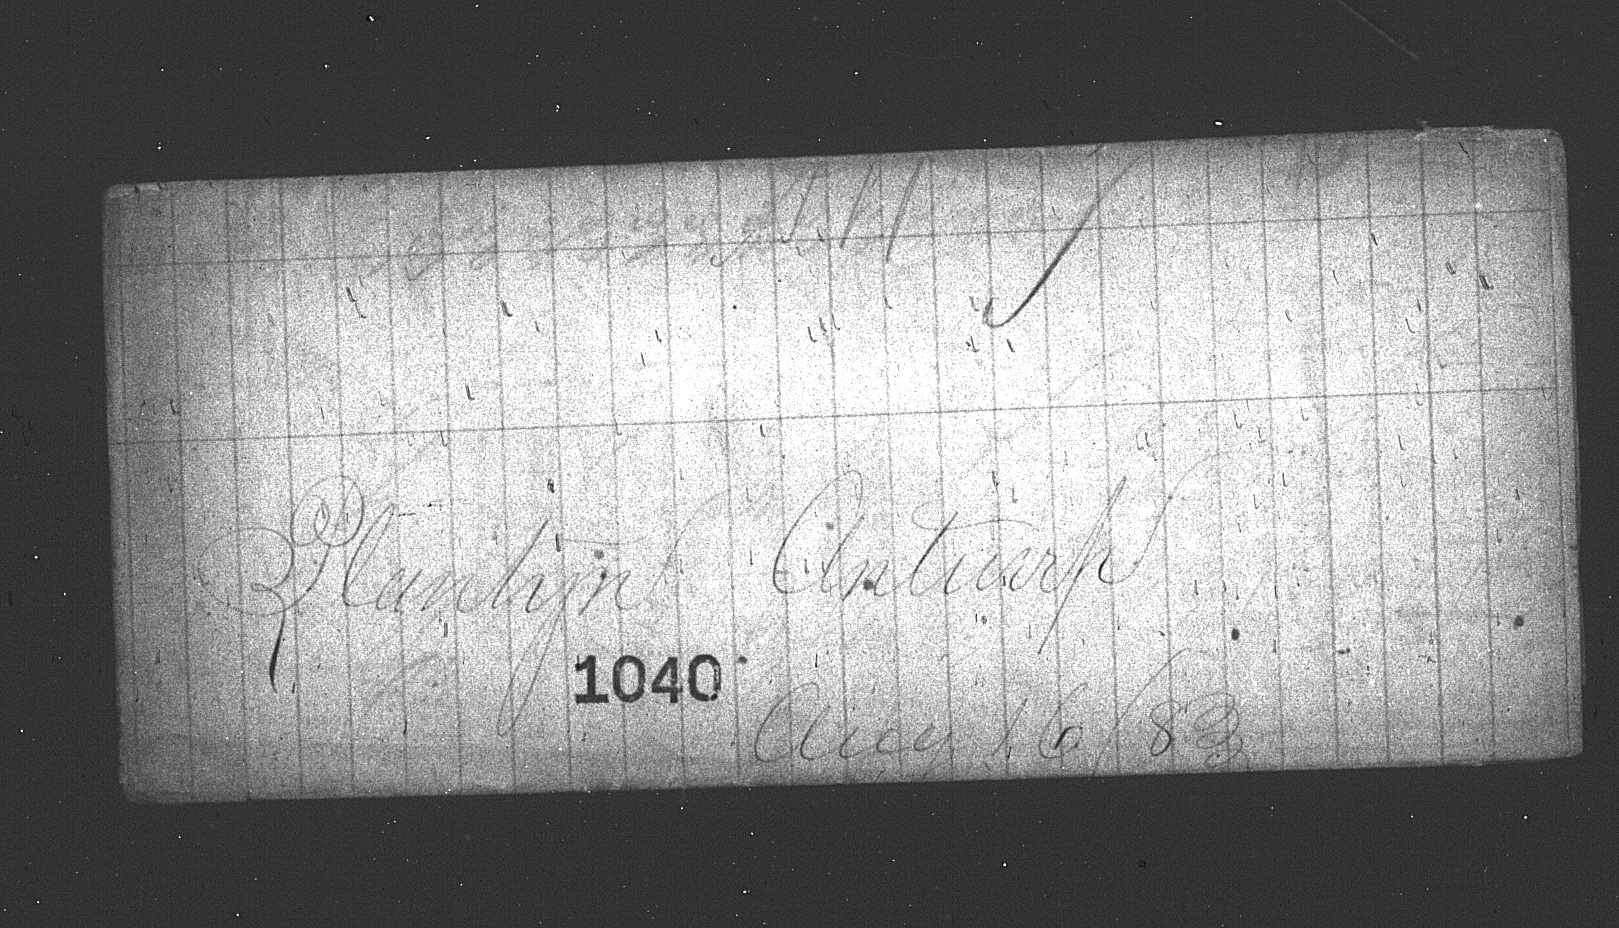 Plantyn Antwerp
1040
Aug 16/83